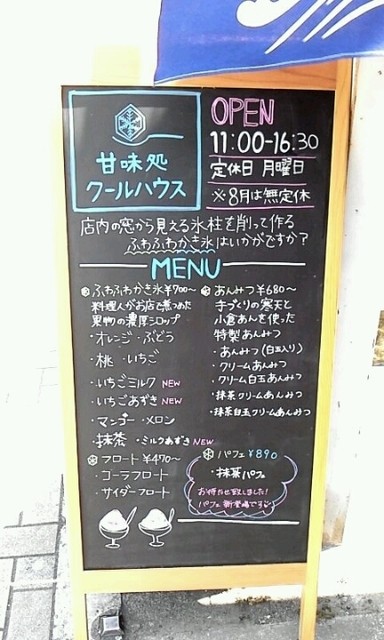 甘味処
クールハウス
OPEN
11:00-16:30
定休日 月曜日
※8月は無定休
店内の窓から見える氷柱を削って作る
ふわふわかき氷はいかがですか?
MENU
ふわふわかき氷¥700〜
料理人がお店で煮つめた
果物の濃厚シロップ
・オレンジ ・ぶどう
・桃 ・いちご
・いちごミルク NEW
・いちごあずき NEW
・マンゴー ・メロン
・抹茶 ・ミルクあずき NEW
フロート ¥470〜
・コーラフロート
・サイダーフロート
あんみつ ¥680〜
手づくりの寒天と
小倉あんを使った
特製あんみつ
・あんみつ(白玉入り)
・クリームあんみつ
・クリーム白玉あんみつ
・抹茶クリームあんみつ
・抹茶白玉クリームあんみつ
パフェ ¥890
・抹茶パフェ
お待たせ致しました!
パフェ新登場です